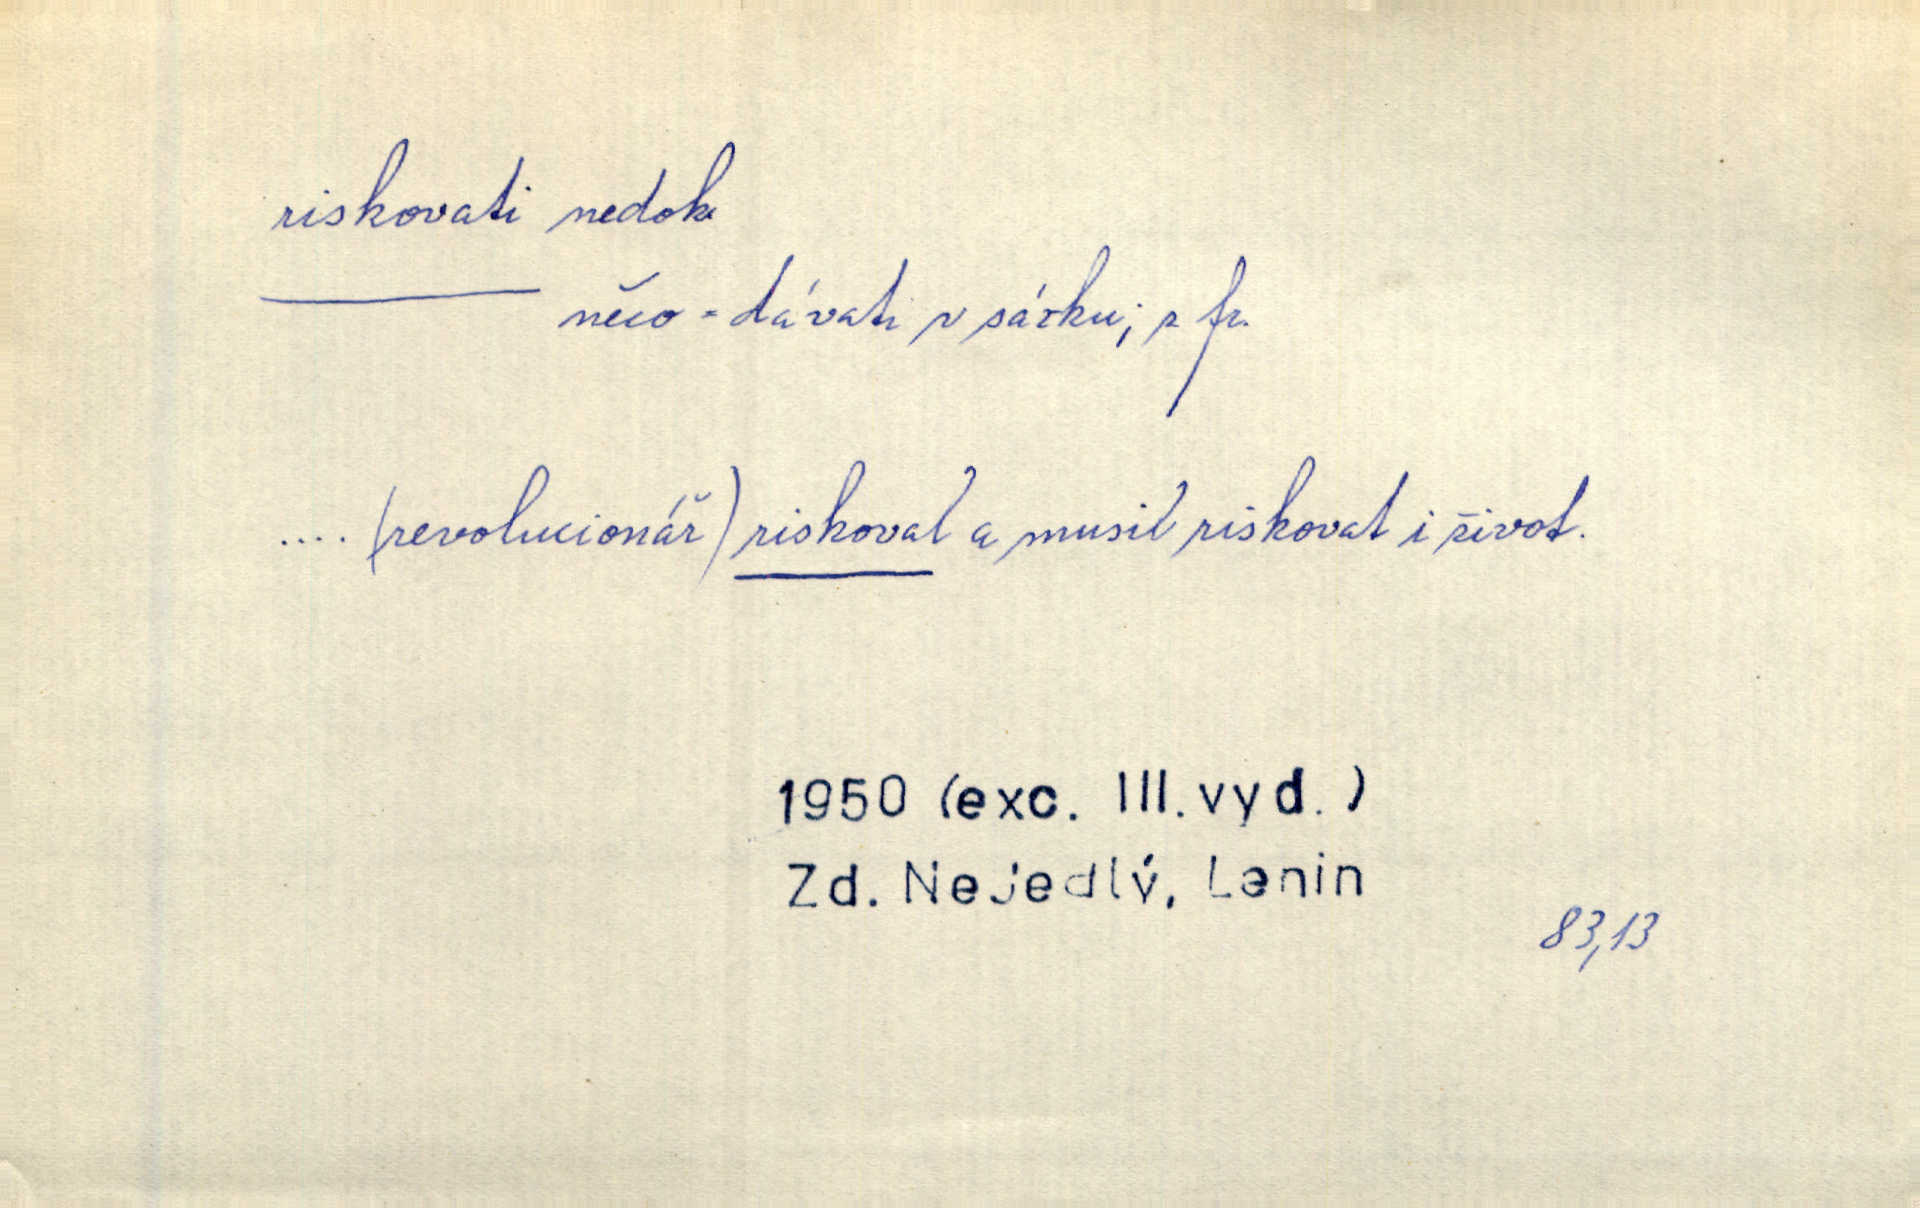 riskovati nedok.
něco - dávati v sázku; z fr.
.... (revolucionář) riskoval a musil riskovat i život.
1950 (exc. III. vyd.)
Zd. Nejedlý, Lenin
83,13